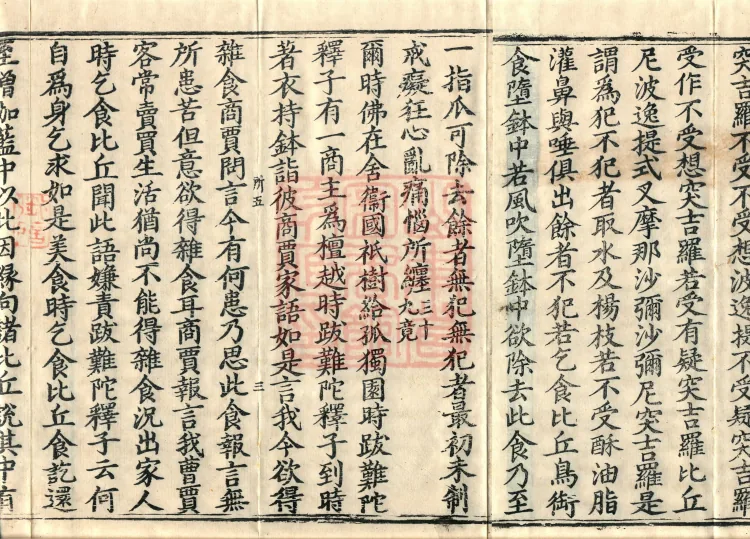 突吉羅不受不受想波逸提不受疑突吉羅
受作不受想突吉羅若受有疑突吉羅比丘
尼波逸提式叉摩那沙彌沙彌尼突吉羅是
謂為犯不犯者取水及楊枝若不受酥油脂
灌鼻與唾俱出餘者不犯若乞食比丘鳥銜
食墮鉢中若風吹墮鉢中欲除去此食乃至
一指爪可除去餘者無犯無犯者最初未制
戒癡狂心亂痛惱所纏三十九竟
爾時佛在舍衞國祇樹給孤獨園時跋難陀
釋子有一商主爲檀越時跋難陀釋子到時
著衣持鉢詣彼商賈家語如是言我今欲得
所五 三
雜食商賈問言今有何患乃思此食報言無
所患苦但意欲得雜食耳商賈報言我曹賈
客常賣買生活猶尚不能得雜食況出家人
時乞食比丘聞此語嫌責跋難陀釋子云何
自爲身乞求如是美食時乞食比丘食訖還
至僧伽藍中以此因緣向諸比丘說其中有